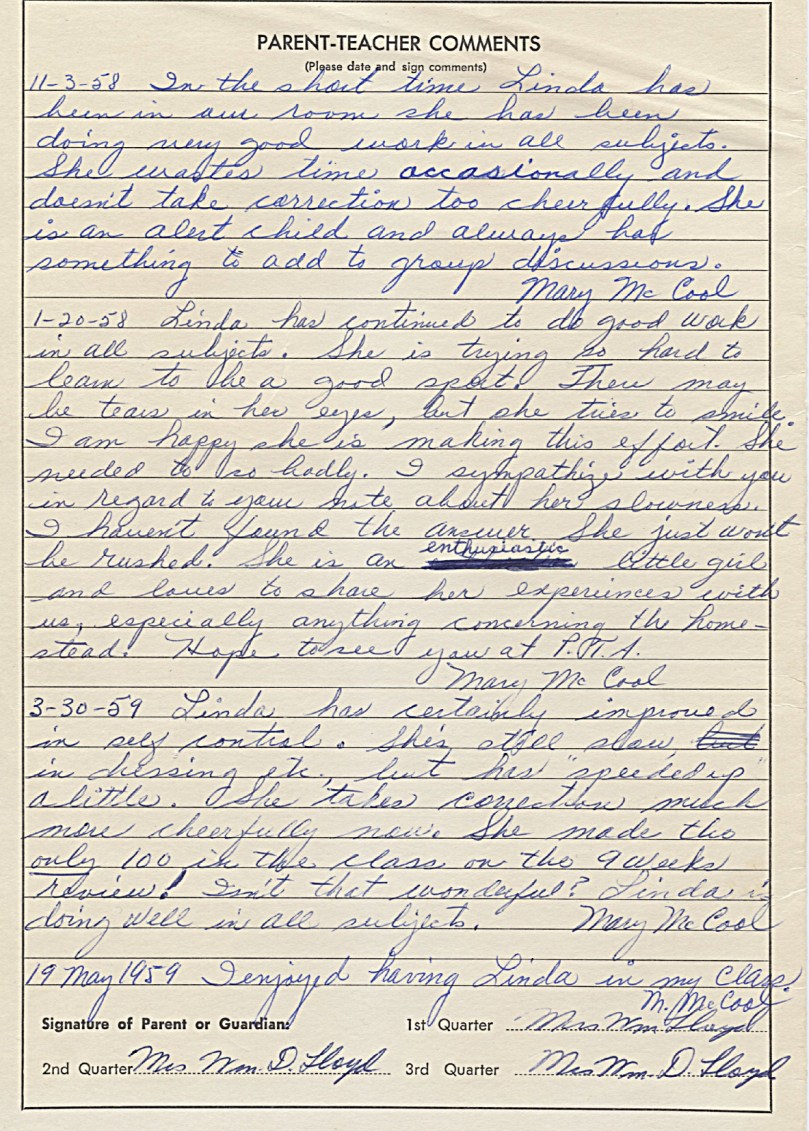 PARENT-TEACHER COMMENTS
(Please date and sign comments)
11-3-58 In the short time Linda has
been in our room she has been
doing very good work in all subjects.
She wastes time occasionally and
doesn't take correction too cheerfully. She
is an alert child and always has
something to add to group discussions.
Mary McCool
1-20-58 Linda has continued to do good work
in all subjects. She is trying so hard to
learn to be a good sport. There may
be tears in her eyes, but she tries to smile.
I am happy she is making this effort. She
needed to so badly. I sympathize with you
in regard to your note about her slowness.
I haven't found the answer. She just won't
be rushed. She is an enthusiastic little girl
and loves to share her experiences with
us, especially anything concerning the home-
stead. Hope to see you at P.T.A.
Mary McCool
3-30-59 Linda has certainly improved
in self control. She's still slow, but
in dressing etc., but has "speeded up"
a little. She takes correction much
more cheerfully now. She made the
only 100 in the class on the 9 weeks
review! Isn't that wonderful? Linda is
doing well in all subjects. Mary McCool
19 May 1959 I enjoyed having Linda in my class.
M. McCool
Signature of Parent or Guardian: 1st Quarter Mrs Wm Lloyd
2nd Quarter Mrs Wm. D. Lloyd 3rd Quarter Mrs Wm. D. Lloyd